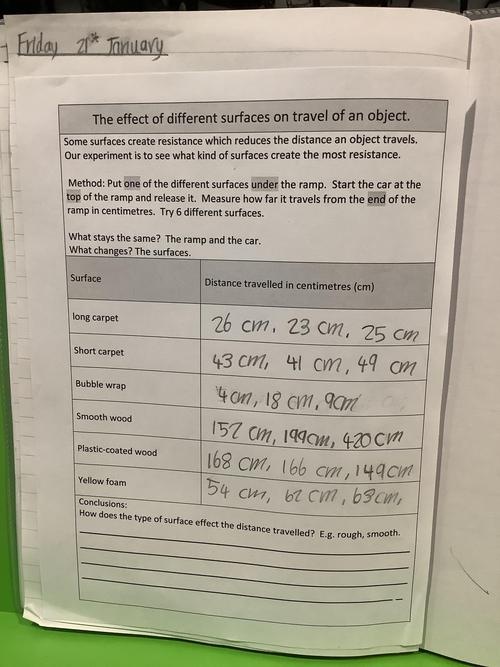 Friday 21st January
The effect of different surfaces on travel of an object.
Some surfaces create resistance which reduces the distance an object travels.
Our experiment is to see what kind of surfaces create the most resistance.
Method: Put one of the different surfaces under the ramp. Start the car at the
top of the ramp and release it. Measure how far it travels from the end of the
ramp in centimetres. Try 6 different surfaces.
What stays the same? The ramp and the car.
What changes? The surfaces.
Surface Distance travelled in centimetres (cm)
long carpet 26 cm, 23 cm, 25 cm
Short carpet 43 cm, 41 cm, 49 cm
Bubble wrap 4cm, 18 cm, 9cm
Smooth wood 152 cm, 199cm, 420 cm
Plastic-coated wood 168 cm, 166 cm, 149cm
Yellow foam 54 cm, 62 cm, 63cm,
Conclusions:
How does the type of surface effect the distance travelled? E.g. rough, smooth.